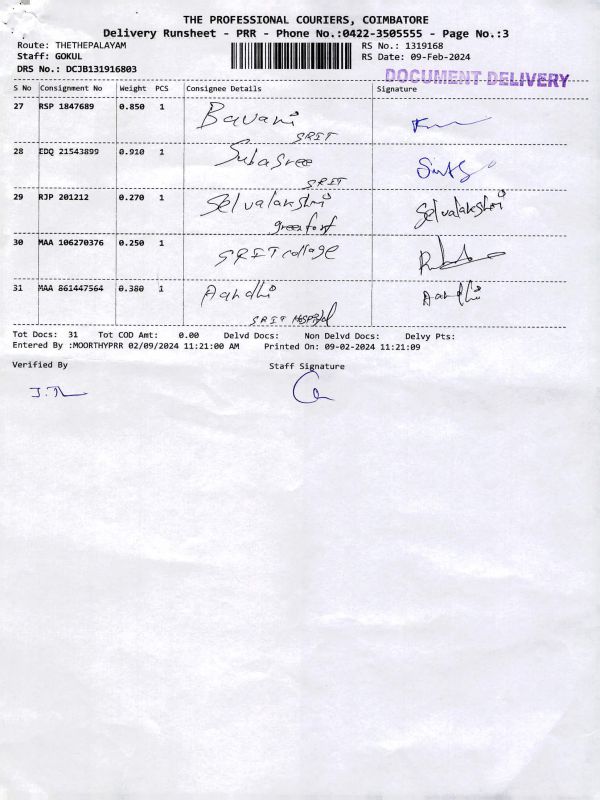 THE PROFESSIONAL COURIERS, COIMBATORE
Delivery Runsheet - PRR - Phone No.:0422-3505555 - Page No.:3
Route: THETHEPALAYAM RS No.: 1319168
Staff: GOKUL RS Date: 09-Feb-2024
DRS No.: DCJB131916803
DOCUMENT DELIVERY
S No Consignment No Weight PCS Consignee Details Signature
27 RSP 1847689 0.850 1 Bavani
SRIT
28 EDQ 21543899 0.910 1 Subasree
SRIT
29 RJP 201212 0.270 1 Selvalakshmi Selvalakshmi
30 MAA 106270376 0.250 1 SRIT collage
31 MAA 861447564 0.380 1 Aandhi Aandhi
SRIT Hospital
Tot Docs: 31 Tot COD Amt: 0.00 Delvd Docs: Non Delvd Docs: Delvy Pts:
Entered By :MOORTHYPRR 02/09/2024 11:21:00 AM Printed On: 09-02-2024 11:21:09
Verified By Staff Signature